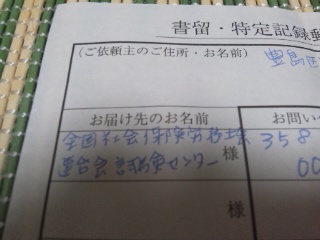 書留・特定記録郵
(ご依頼主のご住所・お名前)
豊島区
お届け先のお名前
お問い
全国社会保険労務士
連合会試験センター 様
358
00
様